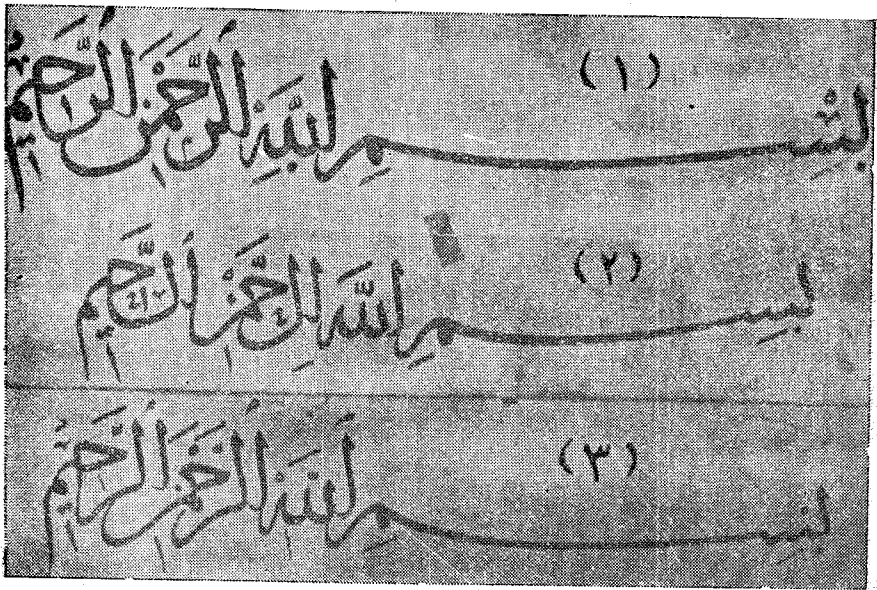 (١)
بِسْمِ اللَّهِ الرَّحْمٰنِ الرَّحِيمِ
(٢)
بسم اللّه الرحمن الرحيم
(٣)
بسم الله الرحمن الرحيم